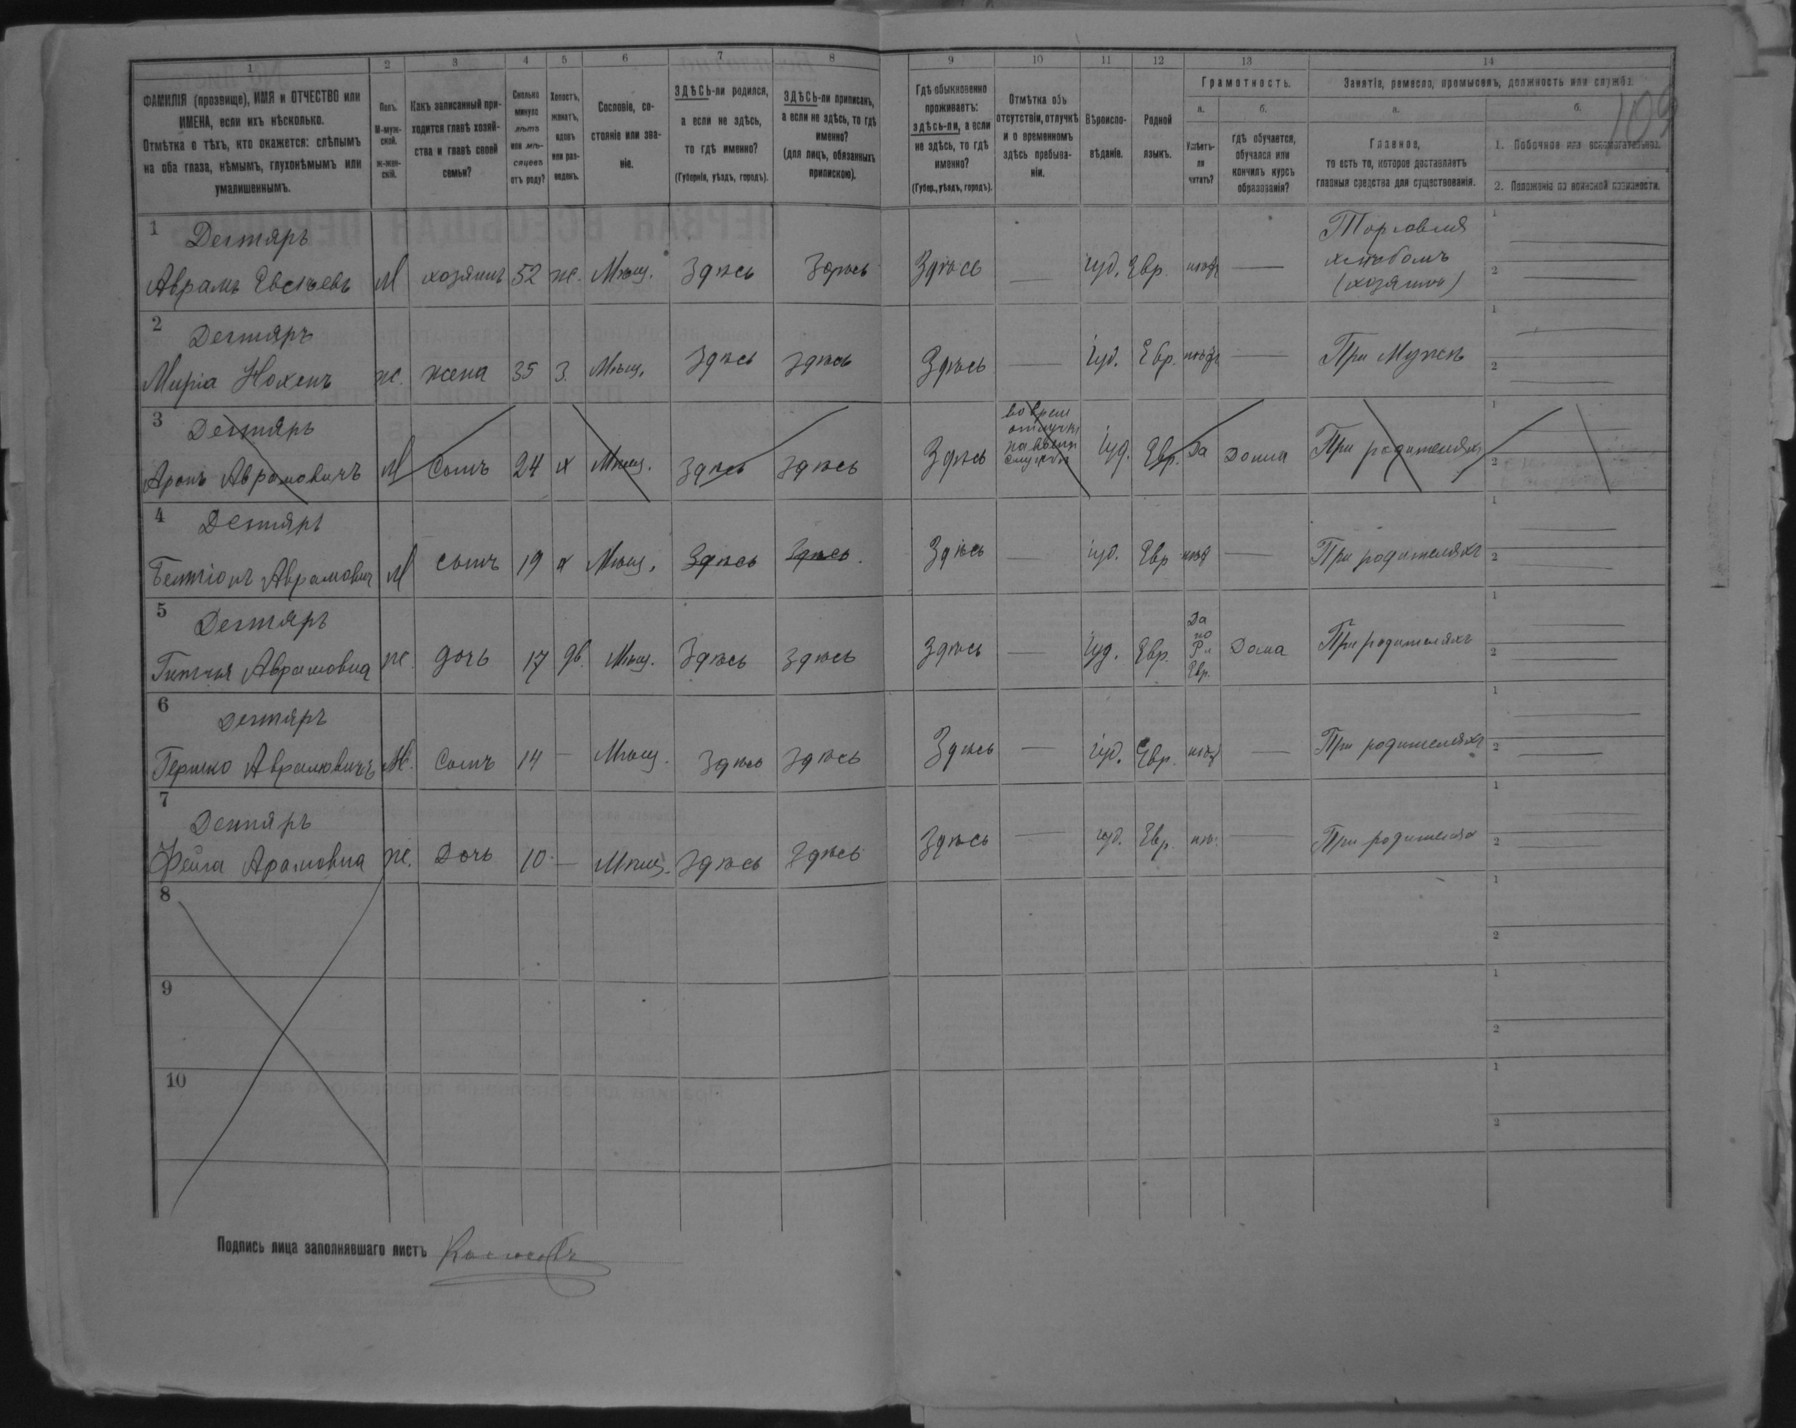 1 2 3 4 5 6 7 8 9 10 11 12 13 14
ФАМИЛІЯ (прозвище), ИМЯ и ОТЧЕСТВО или
ИМЕНА, если ихъ нѣсколько.
Отмѣтка о тѣхъ, кто окажется: слѣпымъ
на оба глаза, нѣмымъ, глухонѣмымъ или
умалишеннымъ.
Полъ.
М-муж-
ской.
Ж-жен-
скій.
Какъ записанный при-
ходится главѣ хозяй-
ства и главѣ своей
семьи?
Сколько
минуло
лѣтъ
или мѣ-
сяцевъ
отъ роду?
Холостъ,
женатъ,
вдовъ
или раз-
веденъ.
Сословіе, со-
стояніе или зва-
ніе.
ЗДѢСЬ-ли родился,
а если не здѣсь,
то гдѣ именно?
(Губернія, уѣздъ, городъ).
ЗДѢСЬ-ли приписанъ,
а если не здѣсь, то гдѣ
именно?
(для лицъ, обязанныхъ
припискою).
Гдѣ обыкновенно
проживаетъ:
здѣсь-ли, а если
не здѣсь, то гдѣ
именно?
(Губер., уѣздъ, городъ).
Отмѣтка объ
отсутствіи, отлучкѣ
и о временномъ
здѣсь пребыва-
ніи.
Вѣроиспо-
вѣданіе.
Родной
языкъ.
Грамотность.
а.
Умѣетъ-
ли
читать?
б.
Гдѣ обучается,
обучался или
кончилъ курсъ
образованія?
Занятіе, ремесло, промыселъ, должность или служба.
а.
Главное,
то есть то, которое доставляетъ
главныя средства для существованія.
б.
1. Побочное или вспомогательное.
2. Положеніе по воинской повинности.
109
1 Дегтярь
Аврамъ Евсѣевъ М хозяинъ 52 ж. Мѣщ. Здѣсь Здѣсь Здѣсь — Іуд. Евр. нѣтъ — Торговля
хлѣбомъ
(хозяинъ)
1
2
2 Дегтярь
Ж. жена 35 З. Мѣщ. Здѣсь Здѣсь Здѣсь — Іуд. Евр. нѣтъ — При Мужѣ
1
2
3 Дегтярь
Аронъ Аврамовичъ М Сынъ 24 х Мѣщ. Здѣсь Здѣсь Здѣсь Іуд. Евр. Да Дома При родителяхъ
1
2
4 Дегтярь
Бенціонъ Аврамович М сынъ 19 х Мѣщ. Здѣсь Здѣсь. Здѣсь — Іуд. Евр нѣтъ — При родителяхъ
1
2
5 Дегтярь
Аврамовна ж. дочь 17 дѣ. Мѣщ. Здѣсь Здѣсь Здѣсь — Іуд. Евр. Да
по
Р и
Евр. Дома При родителяхъ
1
2
6 Дегтярь
Гершко Аврамовичъ М. Сынъ 14 — Мѣщ. Здѣсь Здѣсь Здѣсь — Іуд. Евр. нѣтъ — При родителяхъ
1
2
7 Дегтярь
Фейга Арамовна ж. Дочь 10 — Мѣщ. Здѣсь Здѣсь Здѣсь — Іуд. Евр. нѣ. — При родителях
1
2
8
1
2
9
1
2
10
1
2
Подпись лица заполнявшаго листъ